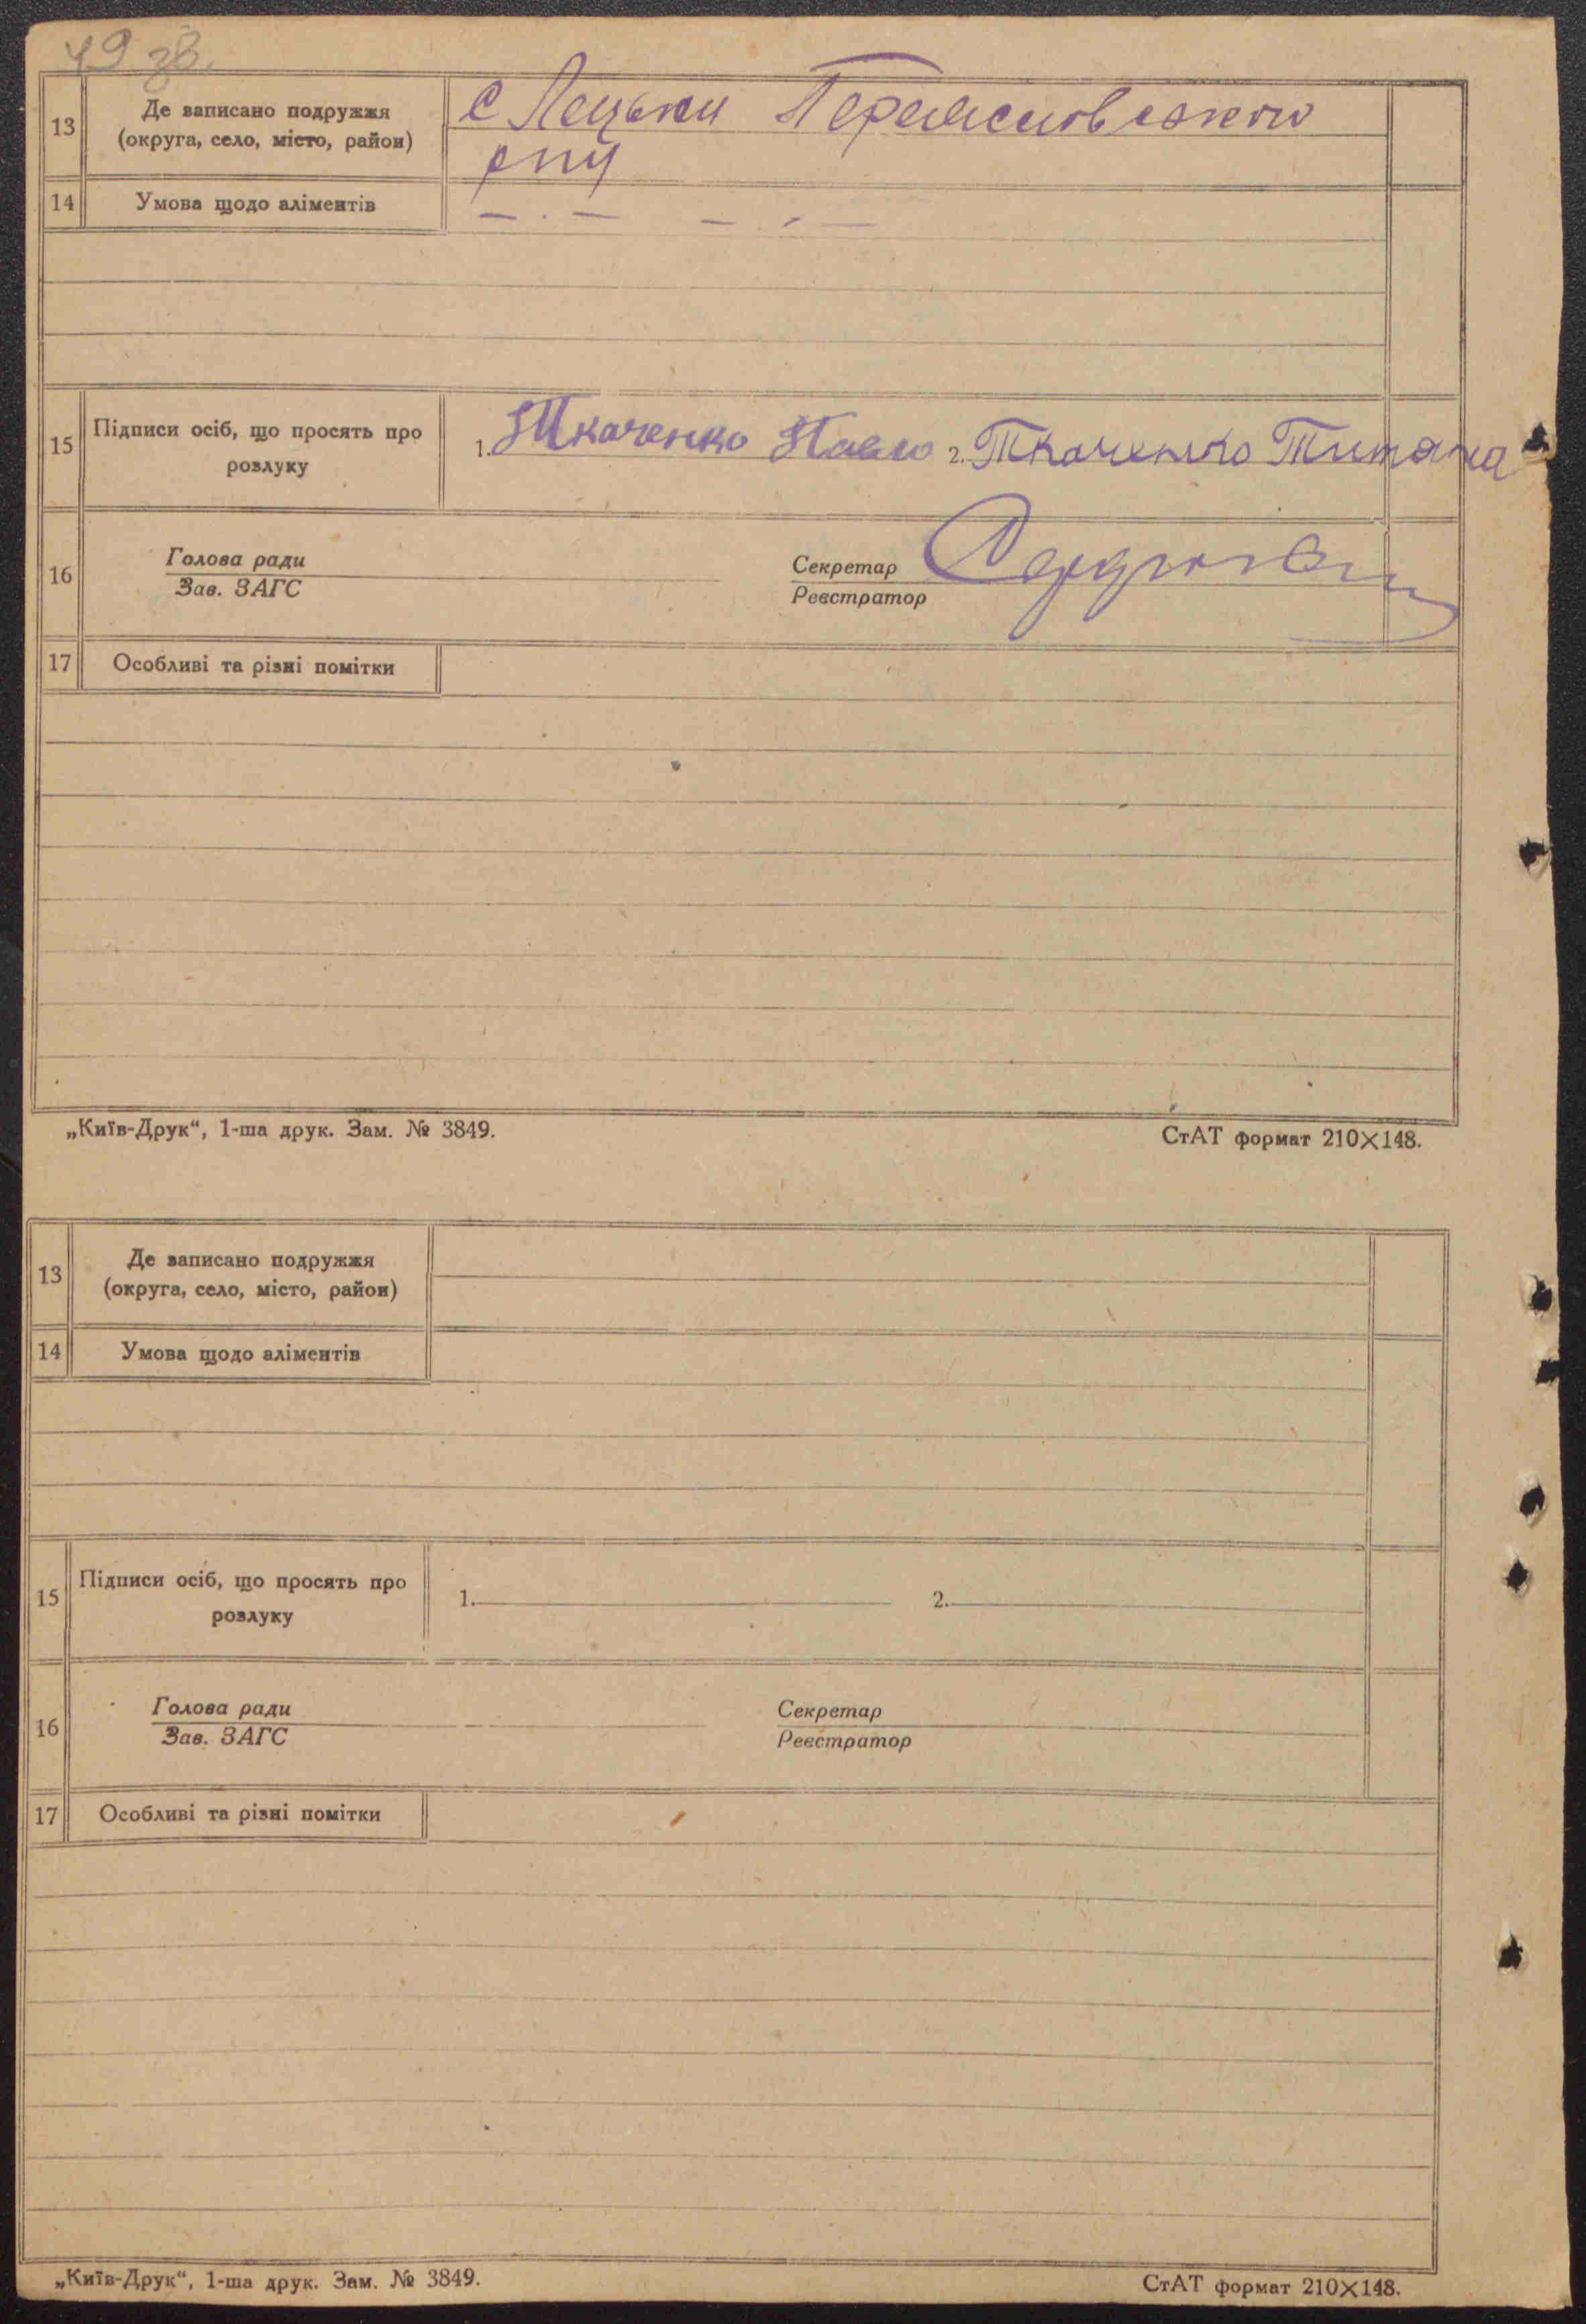 49 зв.
13
Де записано подружжя
(округа, село, місто, район)
с Лецьки Переяславського
рну
14
Умова щодо аліментів
15
Підписи осіб, що просять про
розлуку
1. Ткаченко Павло 2. Ткаченко Титяна
16
Голова ради
Зав. ЗАГС
Секретар
Реєстратор
17
Особливі та різні помітки
„Київ-Друк“, 1-ша друк. Зам. № 3849.
СтАТ формат 210×148.
13
Де записано подружжя
(округа, село, місто, район)
14
Умова щодо аліментів
15
Підписи осіб, що просять про
розлуку
1.
2.
16
Голова ради
Зав. ЗАГС
Секретар
Реєстратор
17
Особливі та різні помітки
„Київ-Друк“, 1-ша друк. Зам. № 3849.
СтАТ формат 210×148.